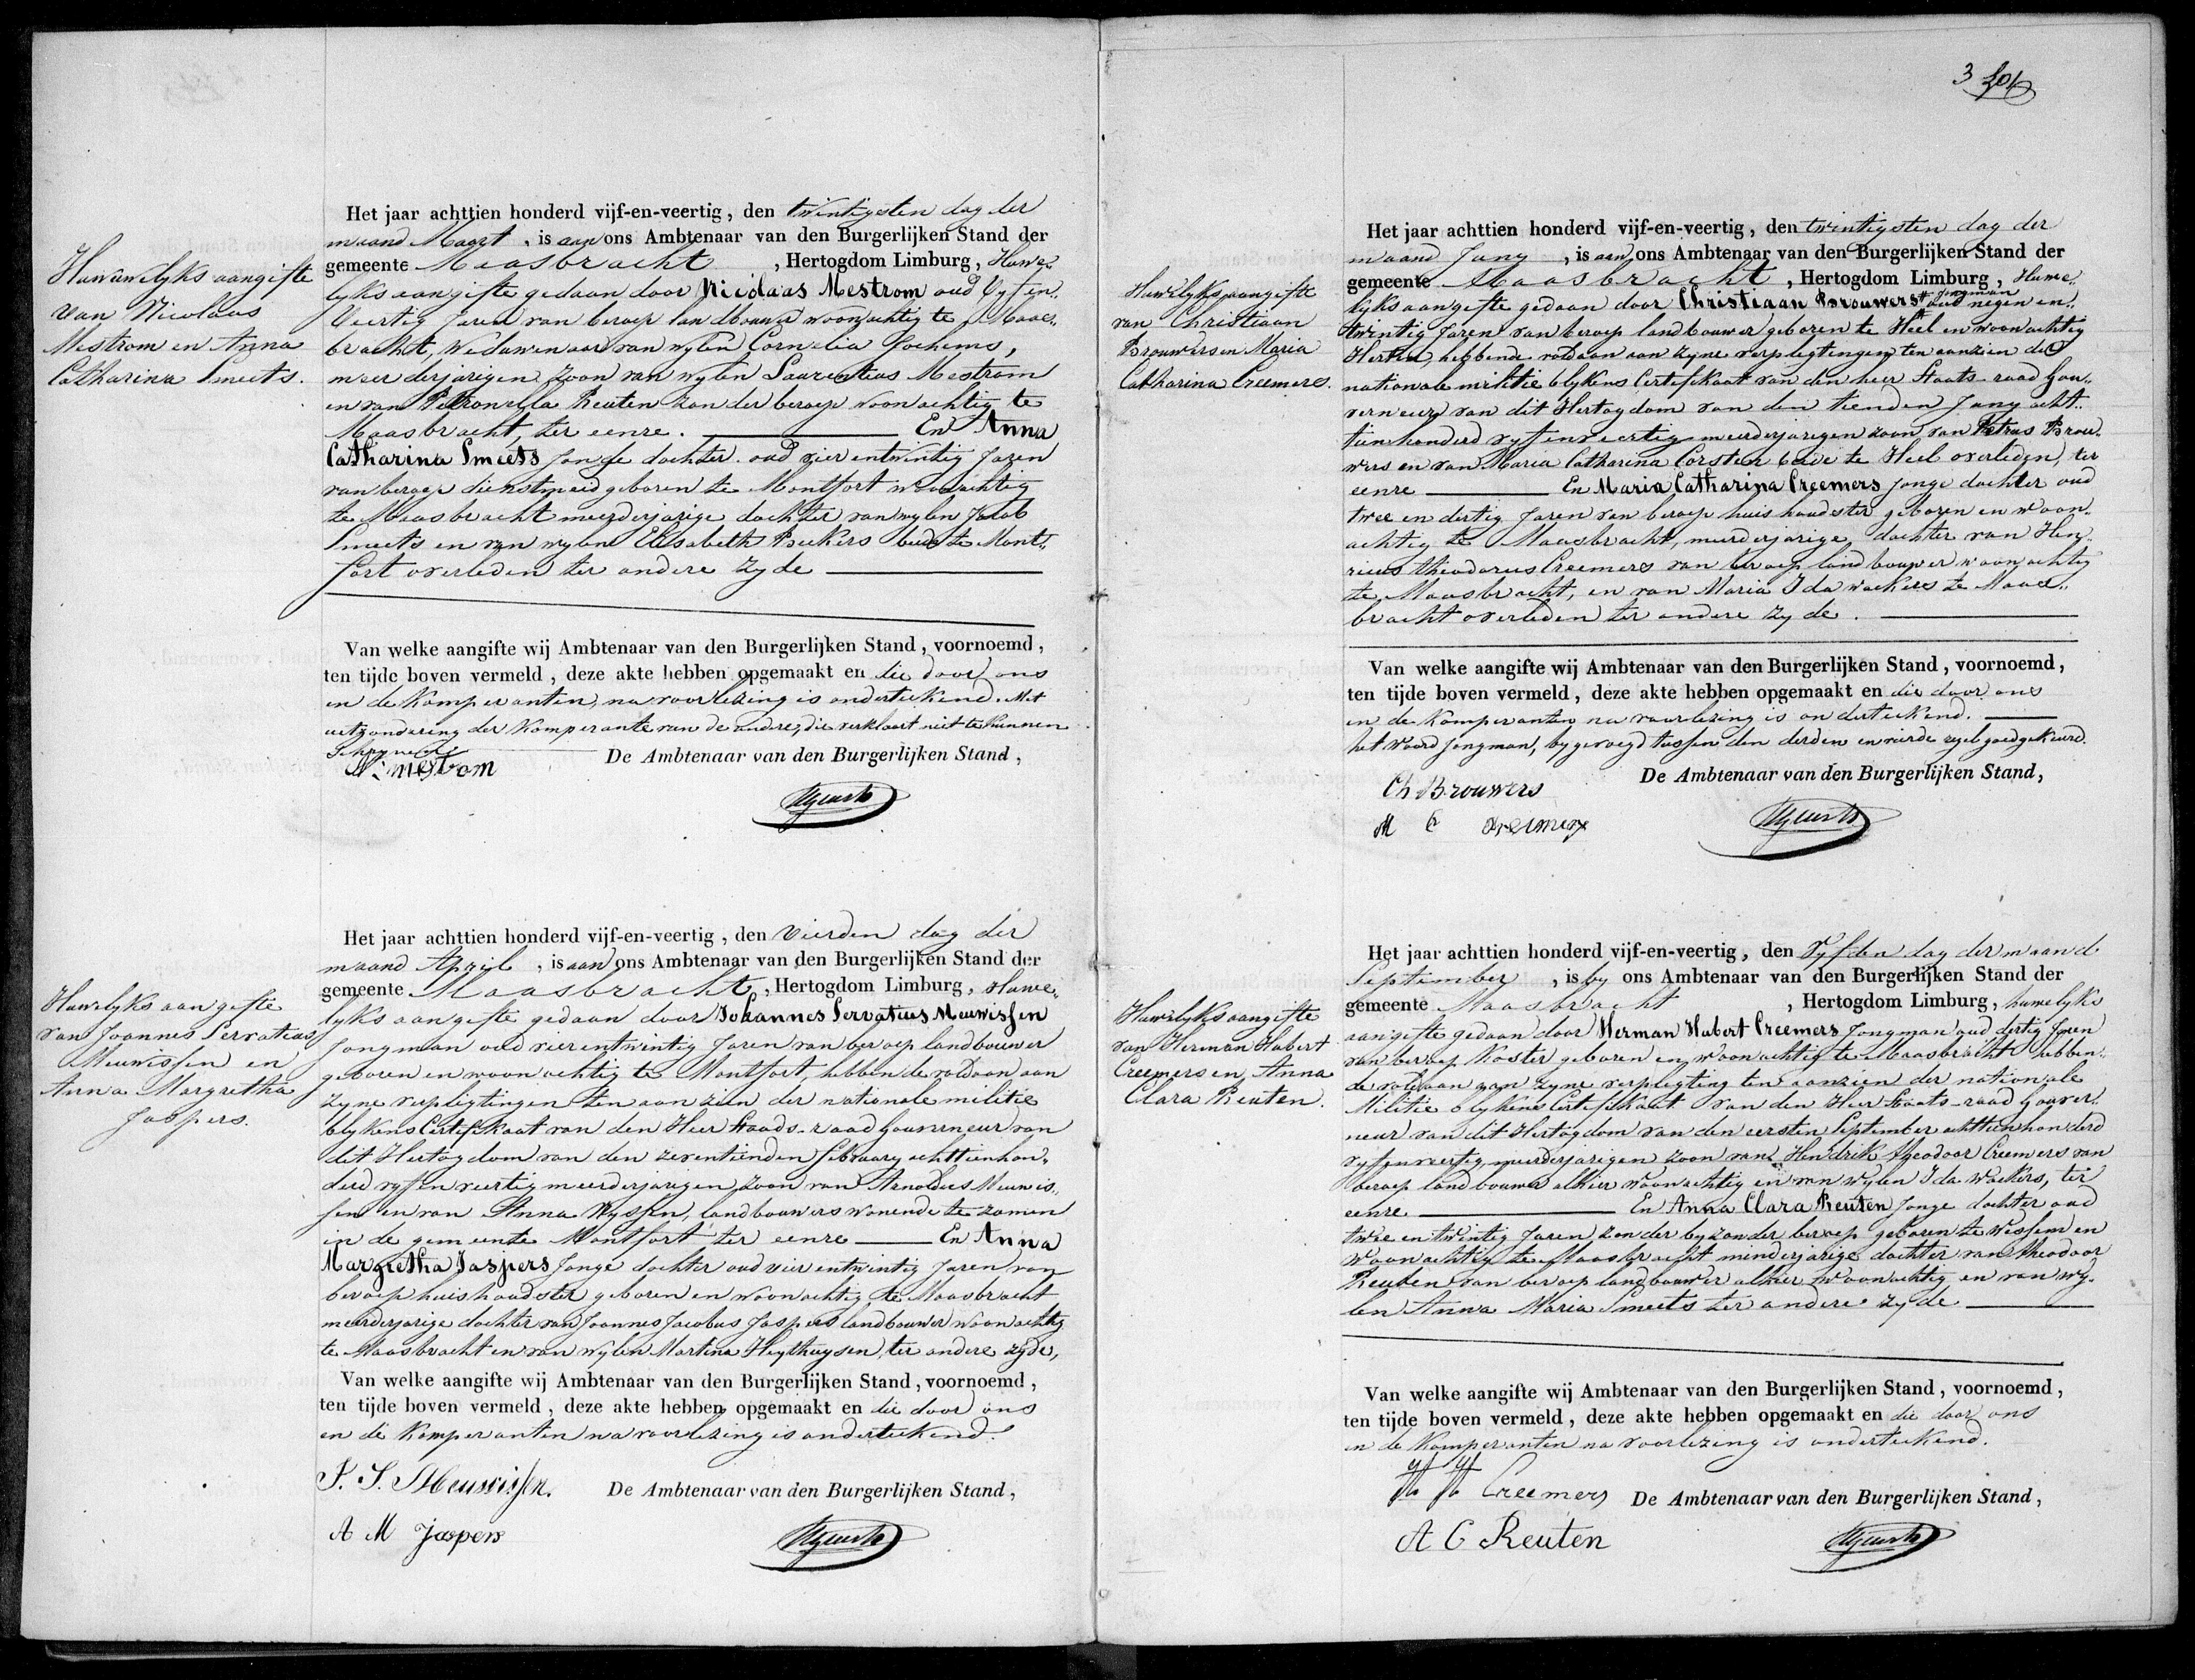 Huwuwelyks aangifte
van Nicolaas
Mestrom en Anna
Catharina Smeets.
Het jaar achttien honderd vijf-en-veertig, den twintigsten dag der
maand Maart, is aan ons Ambtenaar van den Burgerlijken Stand der
gemeente Maasbracht, Hertogdom Limburg, Huwe„
lyks aangifte gedaan door Nicolaas Mestrom oud Vyf en„
Veertig Jaren van beroep landbouwer woonachtig te Maas„
bracht, Weduwenaar van wylen Cornelia Jochems,
meerderjarigen zoon van wylen Laurentius Mestrom
en van Petronella Reuten zonder beroep woonachtig te
Maasbracht, ter eenre. En Anna
Catharina Smeets Jonge dochter oud vier entwintig Jaren
van beroep dienstmeid geboren te Montfort woonachtig
te Maasbracht meerderjarige dochter van wylen Jacob
Smeets en van wylen Elisabeth Beckers beide te Mont„
fort overleden ter andere zyde
Van welke aangifte wij Ambtenaar van den Burgerlijken Stand, voornoemd,
ten tijde boven vermeld, deze akte hebben opgemaakt en die door ons
en de Komperanten, na voorlezing is onderteekend. Met
uitzondering der Komperante van de andre, die verklaart niet te kunnen
Schryven
De Ambtenaar van den Burgerlijken Stand,
N: mestrom
Huwelyks aangifte
van Joannes Servatius
Meuwissen en
Anna Margretha
Jaspers.
Het jaar achttien honderd vijf-en-veertig, den Vierden dag der
maand April, is aan ons Ambtenaar van den Burgerlijken Stand der
gemeente Maasbracht, Hertogdom Limburg, Huwe„
lyks aangifte gedaan door Johannes Servatius Meuwissen
Jongman oud vier entwintig Jaren van beroep landbouwer
geboren en woonachtig te Montfort, hebbende voldaan aan
zyne verpligtingen ten aanzien der nationale militie
blykens Certifikaat van den Heer Staads-raad Gouverneur van
dit Hertogdom van den zeventienden february achttienhon„
derd vyf en veertig meerderjarigen zoon van Arnoldus Meuwis„
sen en van Anna Nyssen, landbouwers wonende te zamen
in de gemeente Montfort ter eenre En Anna
Margretha Jaspers Jonge dochter oud vier entwintig Jaren van
beroep huishoudster geboren en woonachtig te Maasbracht
meerderjarige dochter van Joannes Jacobus Jaspers landbouwer woonachtig
te Maasbracht en van wylen Martina Heythuysen, ter andere zyde,
Van welke aangifte wij Ambtenaar van den Burgerlijken Stand, voornoemd,
ten tijde boven vermeld, deze akte hebben opgemaakt en die door ons
en de Komperanten na voorlezing is onderteekend.
J. S. Meuwissen.
De Ambtenaar van den Burgerlijken Stand,
A M Jaspers
3
Huwelyks aangifte
van Christiaan
Brouwers en Maria
Catharina Creemers.
Het jaar achttien honderd vijf-en-veertig, den twintigsten dag der
maand Juny, is aan ons Ambtenaar van den Burgerlijken Stand der
gemeente Maasbracht, Hertogdom Limburg, Huwe„
lyks aangifte gedaan door Christiaan Brouwers jongman oud negen en„
twintig Jaren van beroep landbouwer geboren te Heel en woonachtig
Herten, hebbende voldaan aan zyne verpligtingen ten aanzien der
nationale militie blykens Certifikaat van den heer Staats-raad Gou„
verneur van dit Hertogdom van den tienden Juny acht„
tien honderd vyf en veertig meerderjarigen zoon van Petrus Brou„
wers en van Maria Catharina Corsten beide te Heel overleden, ter
eenre En Maria Catharina Creemers Jonge dochter oud
twee en dertig Jaren van beroep huishoudster geboren en woon„
achtig te Maasbracht, meerderjarige dochter van Hen„
ricus theodorus Creemers van beroep landbouwer woonachtig
te Maasbracht, en van Maria Ida wackers te Maas„
bracht overleden ter andere zyde.
Van welke aangifte wij Ambtenaar van den Burgerlijken Stand, voornoemd,
ten tijde boven vermeld, deze akte hebben opgemaakt en die door ons
en de Komperanten na voorlezing is onderteekend.
het Woord jongman, bygevoegd tussen den derden en vierde regel goedgekeurd.
De Ambtenaar van den Burgerlijken Stand,
Ch Brouwers
M C Creemers
Huwelyks aangifte
van Herman Hubert
Creemers en Anna
Clara Reuten.
Het jaar achttien honderd vijf-en-veertig, den Vyfden dag der maand
September, is by ons Ambtenaar van den Burgerlijken Stand der
gemeente Maasbracht, Hertogdom Limburg, huwelyks
aangifte gedaan door Herman Hubert Creemers Jongman oud dertig Jaren
van beroep Koster geboren en woonachtig te Maasbracht hebben„
de voldaan aan zyne verpligting ten aanzien der nationale
Militie blykens Certifikaat van den Heer Staats-raad gouver„
neur van dit Hertogdom van den eersten September achttienhonderd
vyfenveertig, meerderjarigen zoon van Hendrik theodoor Creemers van
beroep landbouwer alhier woonachtig en van wylen Ida wackers, ter
eenre En Anna Clara Reuten Jonge dochter oud
twee entwintig Jaren, zonder byzonder beroep geboren te wessem en
woonachtig te Maasbracht minderjarige dochter van theodoor
Reuten van beroep landbouwer alhier woonachtig en van wy„
len Anna Maria Smeets ter andere zyde
Van welke aangifte wij Ambtenaar van den Burgerlijken Stand, voornoemd,
ten tijde boven vermeld, deze akte hebben opgemaakt en die door ons
en de Komperanten na voorlezing is onderteekend.
H H Creemers
De Ambtenaar van den Burgerlijken Stand,
A C Reuten